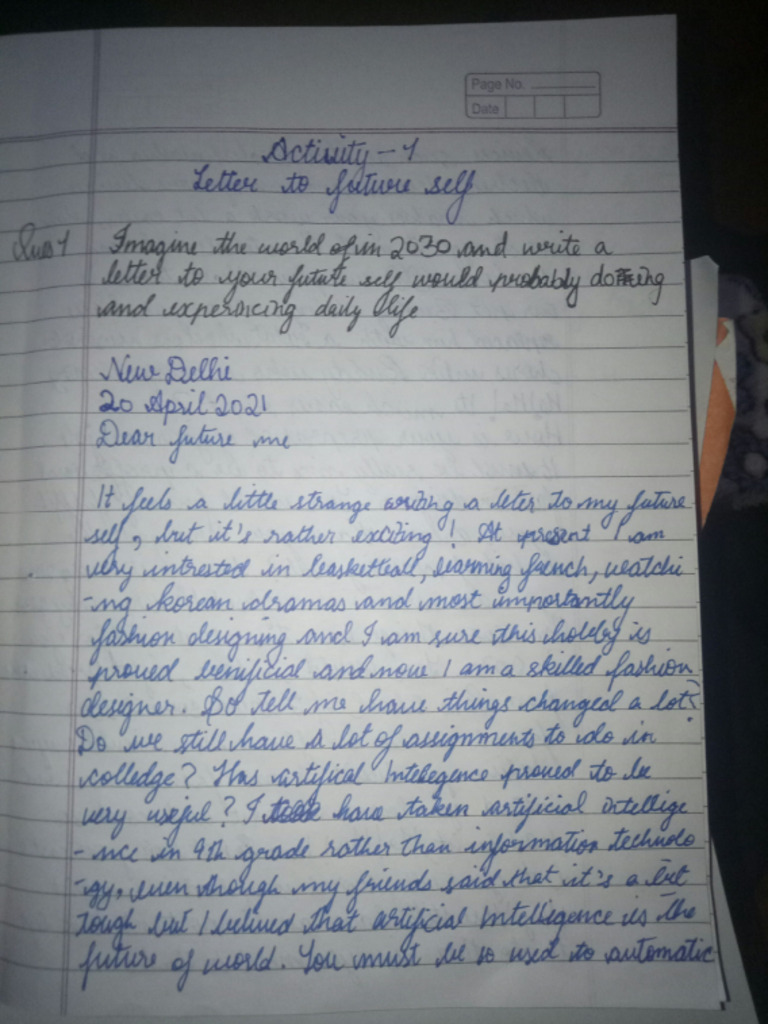 Page No.
Date
Activity - 1
Letter to future self
Ques 1 Imagine the world of in 2030 and write a
letter to your future self would probably doing
and experincing daily life
New Delhi
20 April 2021
Dear future me
It feels a little strange writing a leter to my future
self, but it's rather exciting! At present I am
very intrested in basketball, learning french, watchi
-ng korean dramas and most importantly
fashion designing and I am sure this hobby is
proved benificial and now I am a skilled fashion
designer. So tell me have things changed a lot?
Do we still have a lot of assignments to do in
colledge? Has artifical Intelegence proved to be
very useful? I have taken artificial intellige
-nce in 9th grade rather than information technolo
-gy, even though my friends said that it's a bit
tough but I belived that artificial Intelligence is the
future of world. You must be so used to automatic